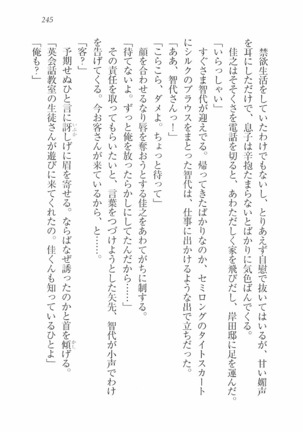 245
禁欲生活をしていたわけでもないし、とりあえず自慰で抜いてはいるが、甘い媚声
を耳にしただけで、息子は辛抱たまらないとばかりに気色ばんでくる。
佳之はそそくさと電話を切ると、あわただしく家を飛びだし、岸田邸に足を運んだ。
「いらっしゃい」
すぐさま智代が迎えでる。帰ってきたばかりなのか、セミロングのタイトスカート
にシルクのブラウスをまとった智代は、仕事に出かけるような出で立ちだった。
「ああ、智代さんっ！」
「こらこら、ダメよ。ちょっと待って」
顔を合わせるなり唇を奪おうとする佳之をあわてがちに制する。
「待てないよ。ずっと俺を放ったらかしにしてたんだから……」
その責任を取ってもらいたいと、言葉をつづけようとした矢先、智代が小声でわけ
を告げてくる。今お客さんが来ているから、と……。
「客？」
予期せぬひと言に訝しげに眉を寄せる。ならばなぜ誘ったのかと首を傾げる。
「英会話教室の生徒さんが遊びに来てくれたの。佳くんも知っているひとよ」
「俺も？」